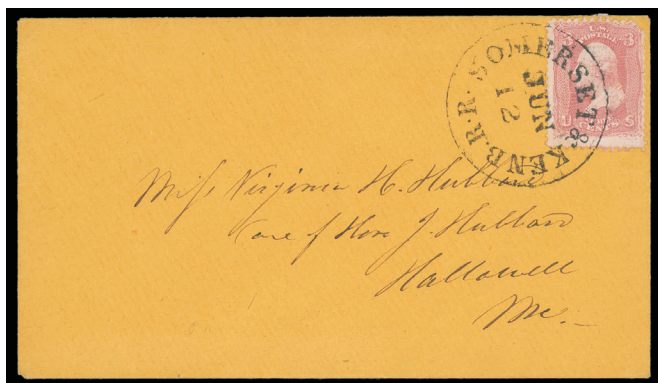 SOMERSET & KENB. R. R.
JUN
12
3 U.S. 3
POSTAGE
U S
Miss Virginia H. Hubbard
Care of Hon J. Hubbard
Hallowell
Me.